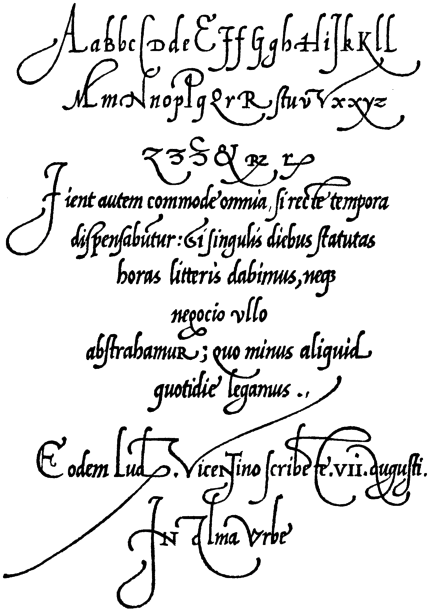 AaBbcCDdeEFfGghHiJkKll
MmnNopPqQrRſtuvVxxyz
Fient autem commode omnia, ſi recte tempora
diſpenſabuntur: Et ſi ſingulis diebus ſtatutas
horas litteris dabimus, neq3
negocio vllo
abſtrahamuR; quo minus aliquid
quotidie legamus .,
Eodem Lud. VicenTino ſcribente. VII. auguſti.
IN Alma Vrbe